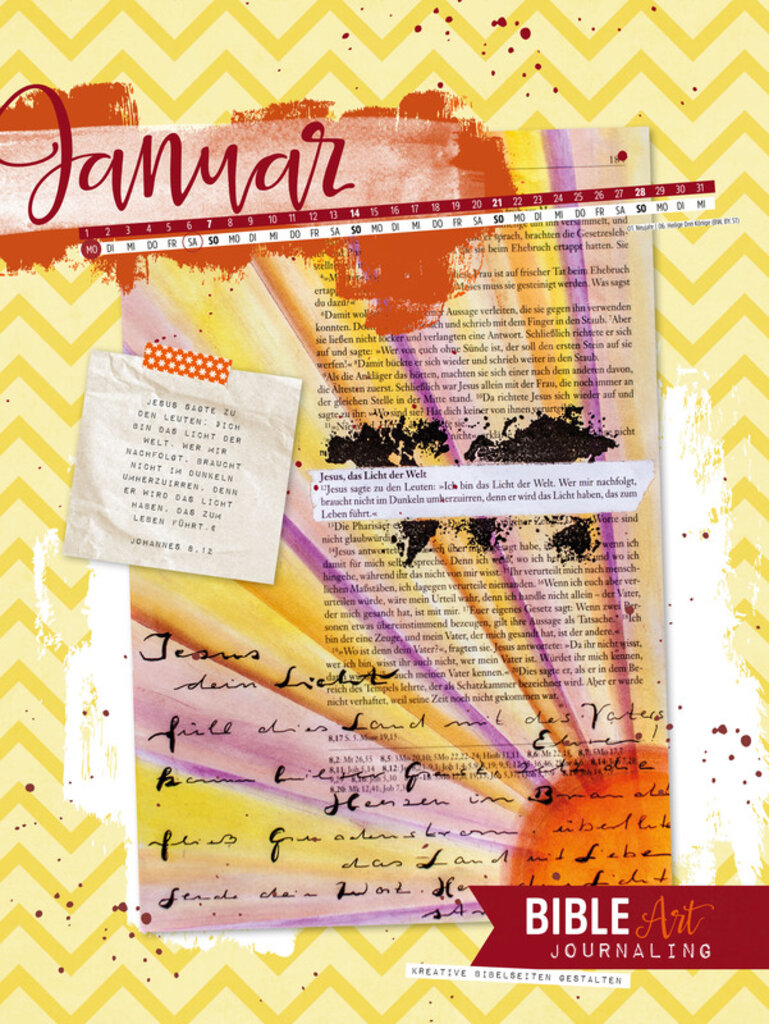 Januar
1 2 3 4 5 6 7 8 9 10 11 12 13 14 15 16 17 18 19 20 21 22 23 24 25 26 27 28 29 30 31
MO DI MI DO FR SA SO MO DI MI DO FR SA SO MO DI MI DO FR SA SO MO DI MI DO FR SA SO MO DI MI
01. Neujahr | 06. Heilige Drei Könige (BW, BY, ST)
JESUS SAGTE ZU
DEN LEUTEN: »ICH
BIN DAS LICHT DER
WELT. WER MIR
NACHFOLGT, BRAUCHT
NICHT IM DUNKELN
UMHERZUIRREN, DENN
ER WIRD DAS LICHT
HABEN, DAS ZUM
LEBEN FÜHRT.«
JOHANNES 8,12
sprach, brachten die Gesetzesleh-
beim Ehebruch ertappt hatten. Sie
Frau ist auf frischer Tat beim Ehebruch
muss sie gesteinigt werden. Was sagst
du dazu?«
Aussage verleiten, die sie gegen ihn verwenden
konnten. und schrieb mit dem Finger in den Staub. ⁷Aber
sie ließen nicht locker und verlangten eine Antwort. Schließlich richtete er sich
auf und sagte: »Wer von euch ohne Sünde ist, der soll den ersten Stein auf sie
werfen!« ⁸Damit bückte er sich wieder und schrieb weiter in den Staub.
⁹Als die Ankläger das hörten, machten sie sich einer nach dem anderen davon,
die Ältesten zuerst. Schließlich war Jesus allein mit der Frau, die noch immer an
der gleichen Stelle in der Mitte stand. ¹⁰Da richtete Jesus sich wieder auf und
sagte zu ihr: »Wo sind sie? Hat dich keiner von ihnen verurteilt?«
Jesus, das Licht der Welt
¹²Jesus sagte zu den Leuten: »Ich bin das Licht der Welt. Wer mir nachfolgt,
braucht nicht im Dunkeln umherzuirren, denn er wird das Licht haben, das zum
Leben führt.«
¹³Die Pharisäer Worte sind
nicht glaubwürdig
¹⁴Jesus antwortete über mich gesagt habe, ist wenn ich
damit für mich selbst spreche. Denn ich weiß, wo ich her und wo ich
hingehe, während ihr das nicht von mir wisst. ¹⁵Ihr verurteilt mich nach menschli-
chen Maßstäben, ich dagegen verurteile niemanden. ¹⁶Wenn ich euch aber ver-
urteilen würde, wäre mein Urteil wahr, denn ich handle nicht allein – der Vater,
der mich gesandt hat, ist mit mir. ¹⁷Euer eigenes Gesetz sagt: Wenn zwei Per-
sonen etwas übereinstimmend bezeugen, gilt ihre Aussage als Tatsache. ¹⁸Ich
bin der eine Zeuge, und mein Vater, der mich gesandt hat, ist der andere.«
¹⁹»Wo ist denn dein Vater?«, fragten sie. Jesus antwortete: »Da ihr nicht wisst,
wer ich bin, wisst ihr auch nicht, wer mein Vater ist. Würdet ihr mich kennen,
dann würdet ihr auch meinen Vater kennen.« ²⁰Dies sagte er, als er in dem Be-
reich des Tempels lehrte, der als Schatzkammer bezeichnet wird. Aber er wurde
nicht verhaftet, weil seine Zeit noch nicht gekommen war.
Jesus
dein Licht
füll dies Land mit des Vaters
8,17 5. Mose 19,15
Ehre!
komm heilger Geist die
Herzen in Brand
fließ Gnadenstrom überflute
das Land mit Liebe
Sende dein Wort, Herr
BIBLE Art
JOURNALING
KREATIVE BIBELSEITEN GESTALTEN